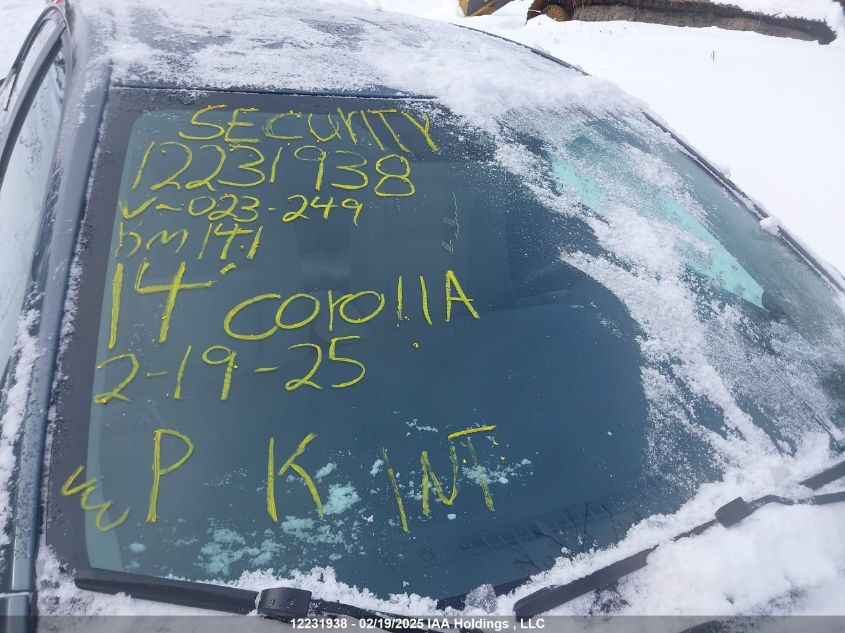 SECURITY
12231938
V-023-249
DM 141
14' COROLLA
2-19-25
P K INT
12231938 - 02/19/2025 IAA Holdings , LLC